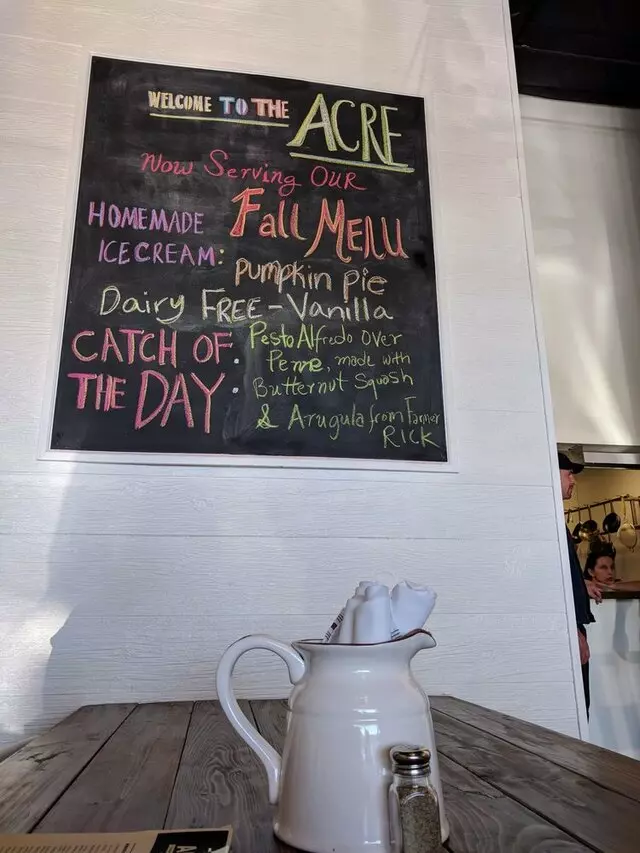 WELCOME TO THE ACRE
Now Serving OUR
Fall MENU
HOMEMADE
ICECREAM:
pumpkin pie
Dairy FREE - Vanilla
CATCH OF
THE DAY:
Pesto Alfredo Over
Penne, made with
Butternut Squash
& Arugula from Farmer
RICK